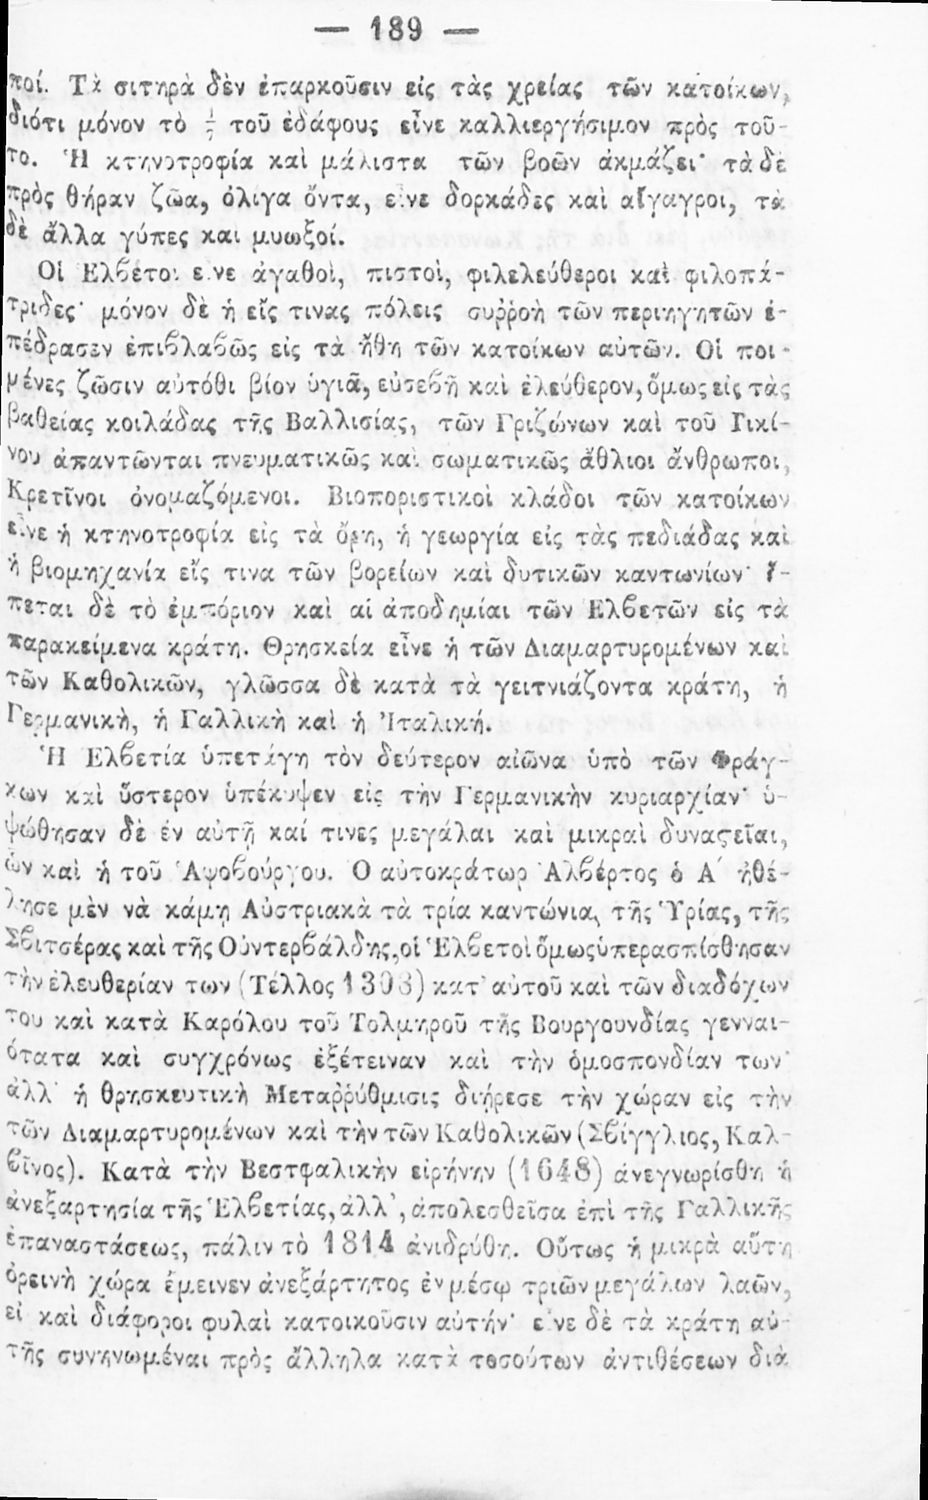 — 189 —
ποί. Τὰ σιτηρὰ δὲν ἐπαρκοῦσιν εἰς τὰς χρείας τῶν κατοίκων,
διότι μόνον τὸ τοῦ ἐδάφους εἶνε καλλιεργήσιμον πρὸς τοῦ-
το. Ἡ κτηνοτροφία καὶ μάλιστα τῶν βοῶν ἀκμάζει· τὰ δὲ
πρὸς θήραν ζῶα, ὀλίγα ὄντα, εἶνε δορκάδες καὶ αἴγαγροι, τὰ
δὲ ἄλλα γύπες καὶ μυωξοί.
Οἱ Ἑλβέτοι εἶνε ἀγαθοὶ, πιστοὶ, φιλελεύθεροι καὶ φιλοπά-
τριδες· μόνον δὲ ἡ εἴς τινας πόλεις συῤῥοὴ τῶν περιηγητῶν ἐ-
πέδρασεν ἐπιβλαβῶς εἰς τὰ ἤθη τῶν κατοίκων αὐτῶν. Οἱ ποι-
μένες ζῶσιν αὐτόθι βίον ὑγιᾶ, εὐσεβῆ καὶ ἐλεύθερον, ὅμως εἰς τὰς
βαθείας κοιλάδας τῆς Βαλλισίας, τῶν Γριζώνων καὶ τοῦ Τικί-
νου ἀπαντῶνται πνευματικῶς καὶ σωματικῶς ἄθλιοι ἄνθρωποι,
Κρετῖνοι ὀνομαζόμενοι. Βιοποριστικοὶ κλάδοι τῶν κατοίκων
εἶνε ἡ κτηνοτροφία εἰς τὰ ὄρη, ἡ γεωργία εἰς τὰς πεδιάδας καὶ
ἡ βιομηχανία εἴς τινα τῶν βορείων καὶ δυτικῶν καντωνίων· ἕ-
πεται δὲ τὸ ἐμπόριον καὶ αἱ ἀποδημίαι τῶν Ἑλβετῶν εἰς τὰ
παρακείμενα κράτη. Θρησκεία εἶνε ἡ τῶν Διαμαρτυρομένων καὶ
τῶν Καθολικῶν, γλῶσσα δὲ κατὰ τὰ γειτνιάζοντα κράτη, ἡ
Γερμανικὴ, ἡ Γαλλικὴ καὶ ἡ Ἰταλική.
Ἡ Ἑλβετία ὑπετάγη τὸν δεύτερον αἰῶνα ὑπὸ τῶν Φράγ-
κων καὶ ὕστερον ὑπέκυψεν εἰς τὴν Γερμανικὴν κυριαρχίαν· ὑ-
ψώθησαν δὲ ἐν αὐτῇ καί τινες μεγάλαι καὶ μικραὶ δυναστεῖαι,
ὧν καὶ ἡ τοῦ Ἁψβούργου. Ὁ αὐτοκράτωρ Ἀλβέρτος ὁ Α΄ ἠθέ-
λησε μὲν νὰ κάμῃ Αὐστριακὰ τὰ τρία καντώνια, τῆς Ὑρίας, τῆς
Σβιτσέρας καὶ τῆς Οὐντερβάλδης, οἱ Ἑλβετοὶ ὅμως ὑπερασπίσθησαν
τὴν ἐλευθερίαν των (Τέλλος 1308) κατ' αὐτοῦ καὶ τῶν διαδόχων
του καὶ κατὰ Καρόλου τοῦ Τολμηροῦ τῆς Βουργουνδίας γενναι-
ότατα καὶ συγχρόνως ἐξέτειναν καὶ τὴν ὁμοσπονδίαν των·
ἀλλ' ἡ θρησκευτικὴ Μεταῤῥύθμισις διῄρεσε τὴν χώραν εἰς τὴν
τῶν Διαμαρτυρομένων καὶ τὴν τῶν Καθολικῶν (Σβίγγλιος, Καλ-
βῖνος). Κατὰ τὴν Βεστφαλικὴν εἰρήνην (1648) ἀνεγνωρίσθη ἡ
ἀνεξαρτησία τῆς Ἑλβετίας, ἀλλ', ἀπολεσθεῖσα ἐπὶ τῆς Γαλλικῆς
ἐπαναστάσεως, πάλιν τὸ 1814 ἀνιδρύθη. Οὕτως ἡ μικρὰ αὕτη
ὀρεινὴ χώρα ἔμεινεν ἀνεξάρτητος ἐν μέσῳ τριῶν μεγάλων λαῶν,
εἰ καὶ διάφοροι φυλαὶ κατοικοῦσιν αὐτήν· εἶνε δὲ τὰ κράτη αὐ-
τῆς συνηνωμέναι πρὸς ἄλληλα κατὰ τοσούτων ἀντιθέσεων διὰ